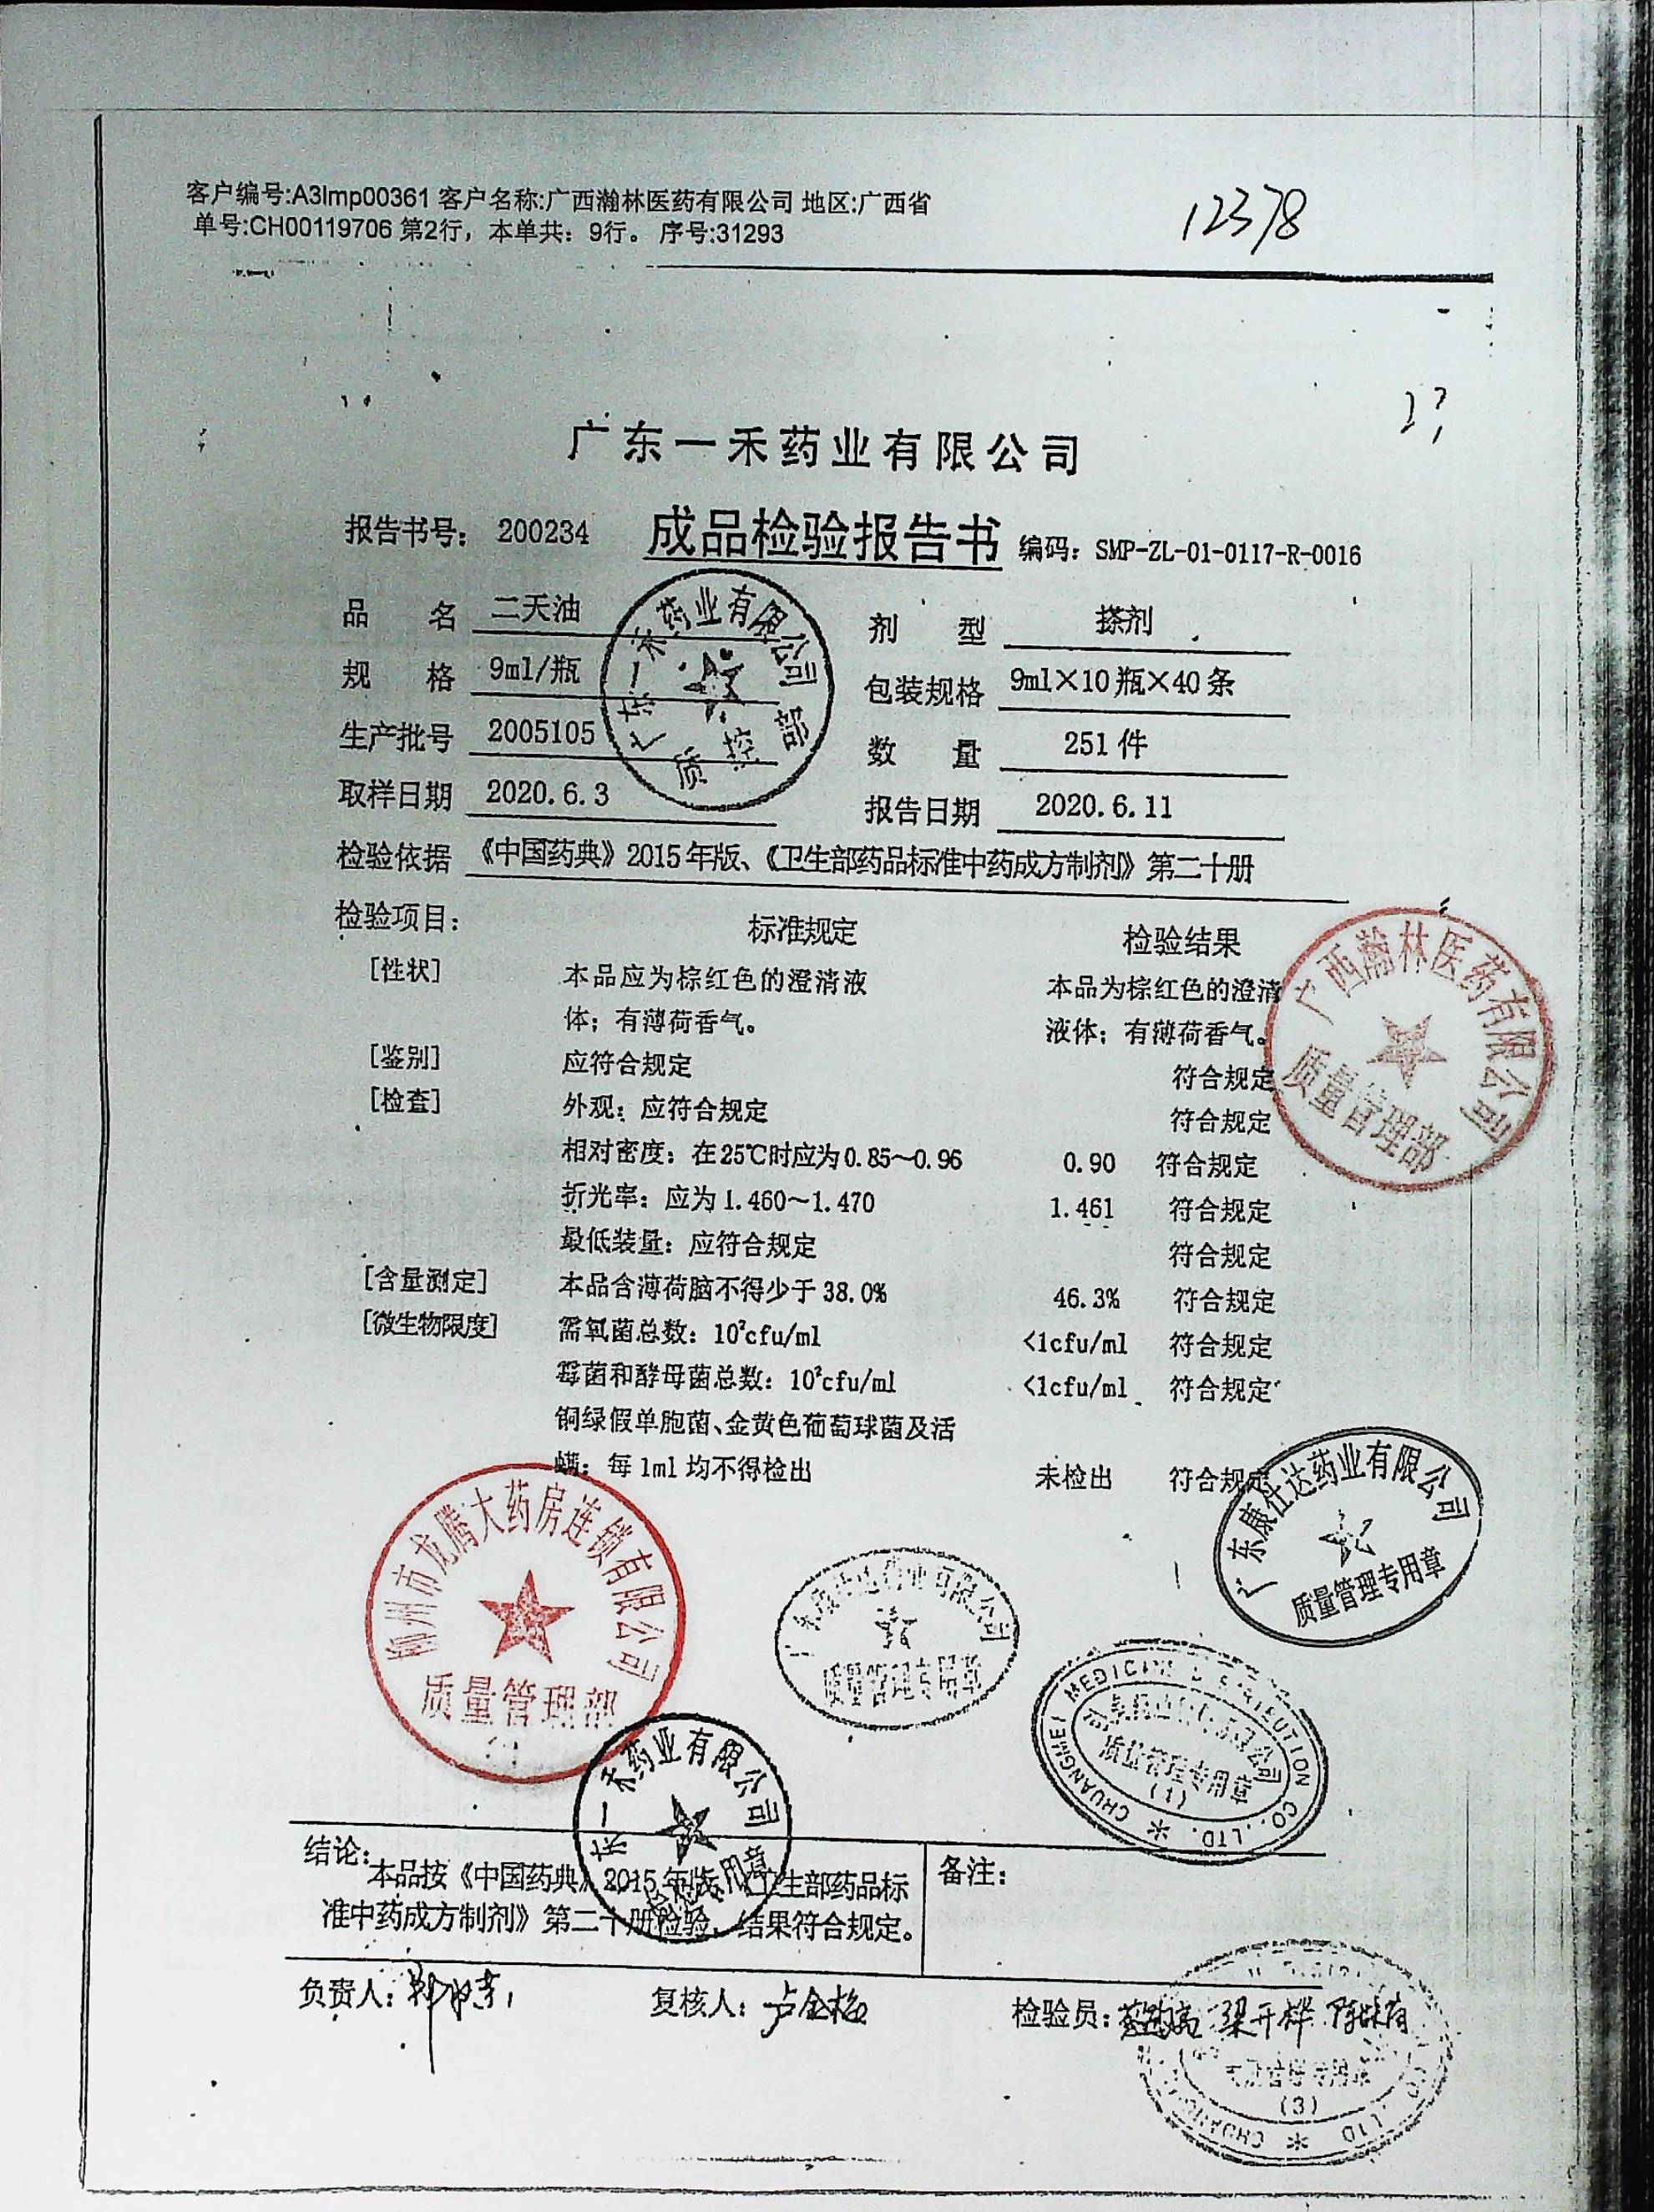 客户编号:A3lmp00361 客户名称:广西瀚林医药有限公司 地区:广西省
单号:CH00119706 第2行，本单共：9行。 序号:31293
12378
广东一禾药业有限公司
报告书号： 200234 成品检验报告书 编码：SMP-ZL-01-0117-R-0016
品 名 二天油 剂 型 搽剂
规 格 9ml/瓶 包装规格 9ml×10瓶×40条
生产批号 2005105 数 量 251件
取样日期 2020.6.3 报告日期 2020.6.11
广东一禾药业有限公司
质控部
检验依据 《中国药典》2015年版、《卫生部药品标准中药成方制剂》第二十册
检验项目： 标准规定 检验结果
［性状］ 本品应为棕红色的澄清液 本品为棕红色的澄清
体；有薄荷香气。 液体；有薄荷香气。
［鉴别］ 应符合规定 符合规定
［检查］ 外观：应符合规定 符合规定
相对密度：在25℃时应为0.85～0.96 0.90 符合规定
折光率：应为1.460～1.470 1.461 符合规定
最低装量：应符合规定 符合规定
［含量测定］ 本品含薄荷脑不得少于38.0% 46.3% 符合规定
［微生物限度］ 需氧菌总数：10²cfu/ml <1cfu/ml 符合规定
霉菌和酵母菌总数：10²cfu/ml <1cfu/ml 符合规定
铜绿假单胞菌、金黄色葡萄球菌及活
螨：每1ml均不得检出 未检出 符合规定
广西瀚林医药有限公司
质量管理部
柳州市龙腾大药房连锁有限公司
质量管理部
广东康仕达药业有限公司
质量管理专用章
质量管理专用章
CHUANGMEI MEDICINE DISTRIBUTION CO.,LTD.
(1)
一禾药业有限公司
结论： 备注：
本品按《中国药典》2015年版、《卫生部药品标
准中药成方制剂》第二十册检验，结果符合规定。
负责人： 复核人：卢金梅 检验员： 梁开桦
(3)